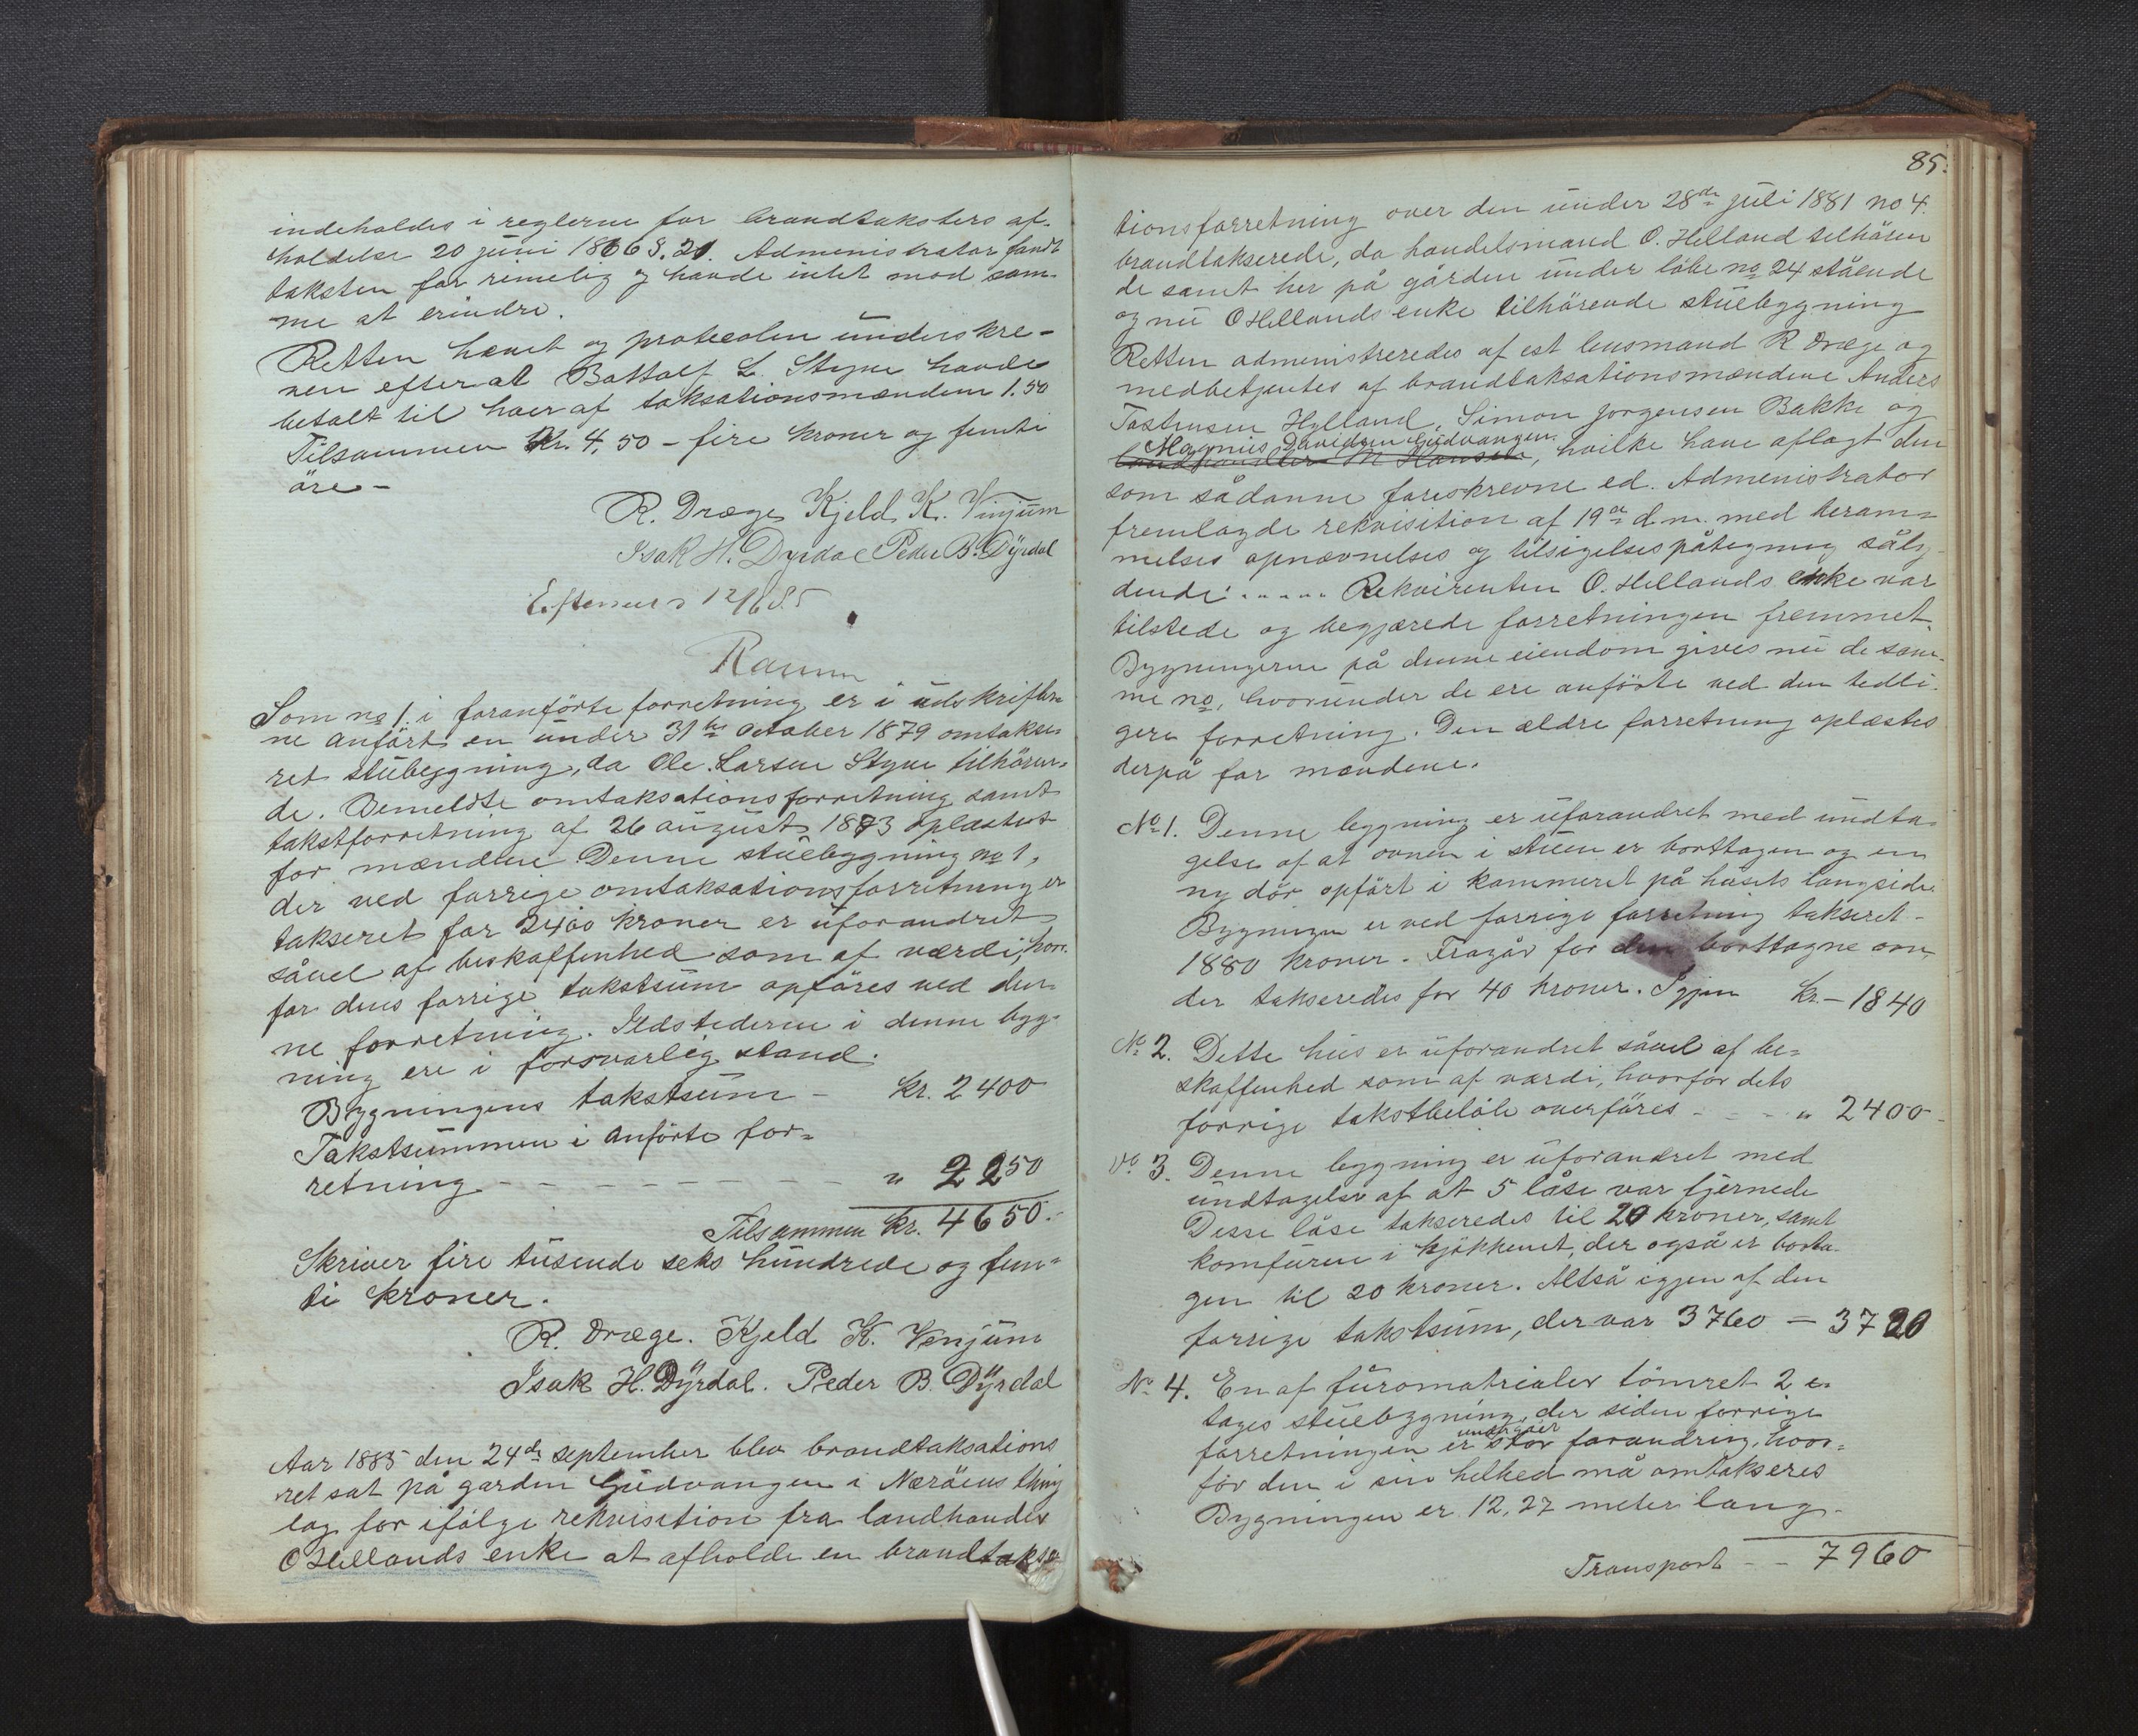 indeholdes i reglerne for brandtaksters af-
holdelse 20 juni 1866 §. 21. Administrator fandt
taksten for rimelig og havde intet mod sam-
me at erindre.
Retten hævet og protocolen underskre-
ven efter at Bottolf L. Styve havde
betalt til hver af taksationsmændene 1.50
Tilsammen Kr. 4,50 – fire kroner og femti
öre –
R. Dræge Kjeld K. Vinjum
Isak H. Dyrdal Peder B. Dÿrdal
12/6 85
Som no 1. i foranförte forretning er i udskrifter-
ne anfört en under 31te october 1879 omtakse-
ret stuebygning, da Ole Larsen Styve tilhören-
de. Bemeldte omtaksationsforretning samt
takstforretning af 26 august 1873 oplæstes
for mændene. Denne stuebygning no 1,
der ved forrige omtaksationsforretning er
takseret for 2400 kroner er uforandret
såvel af beskaffenhed som af værdi, hvor-
for dens forrige takstsum opföres ved den-
ne forretning. Ildstederne i denne byg-
ning ere i forsvarlig stand.
Bygningens takstsum – kr. 2400
Takstsummen i anförte for-
retning – – – – – – – – " 2250
Tilsammen kr. 4650.-
Skriver fire tusende seks hundrede og fem-
ti kroner.
R. Dræge. Kjeld K. Venjum
Isak H. Dÿrdal. Peder B. Dÿrdal
Aar 1885 den 24de september blev brandtaksations
ret sat på garden Gudvangen i Næröens thing
lag for ifölge rekvisition fra landhandler
O Hellands enke at afholde en brandtaksa
85.
tionsforretning over den under 28de juli 1881 no 4.
brandtakserede, da handelsmand O. Helland tilhören
de samt her på gården under löbe no 24 stående
og nu O Hellands enke tilhörende stuebygning
Retten administreredes af cst lensmand R Dræge og
medbetjentes af brandtaksationsmændene Anders
Tostensen Hylland, Simon Jorgensen Bakke og
Magnus Davidsen Gudvangen
landhandler M Hansen, hvilke have aflagt den
som sådanne foreskrevne ed. Administrator
fremlagde rekvisition af 19de d. m. med beram-
melses opnævnelses og tilsigelsespåtegning såly-
dende: . . . . . Rekvirenten O. Hellands enke var
tilstede og begjærede forretningen fremmet.
Bygningerne på denne eiendom gives nu de sam-
me no, hvorunder de ere anförte ved den tidli-
gere forretning. Den ældre forretning oplæstes
derpå for mændene.
No 1. Denne bygning er uforandret med undta-
gelse af at ovnen i stuen er borttagen og en
ny dör opfört i kammeret på husets langside.
Bygningen er ved forrige forretning takseret –
1880 kroner. – Fragår for den borttagne ovn,
der takseredes for 40 kroner. Igjen kr. – 1840
No 2. Dette hus er uforandret såvel af be-
skaffenhed som af værdi, hvorfor dets
forrige takstbelöb overföres – – – " 2400 –
No 3. Denne bygning er uforandret med
undtagelse af at 5 låse var fjernede
Disse låse takseredes til 20 kroner, samt
komfuren i kjökkenet, der også er bortta-
gen til 20 kroner. Altså igjen af den
forrige takstsum, der var 3760 – 3720
No 4. En af furomatrialer tömret 2 e-
tages stuebygning, der siden forrige
undergået
forretningen er stor forandring, hvor-
for den i sin helhed må omtakseres
Bygningen er 12,27 meter lang –
Transport – – 7960